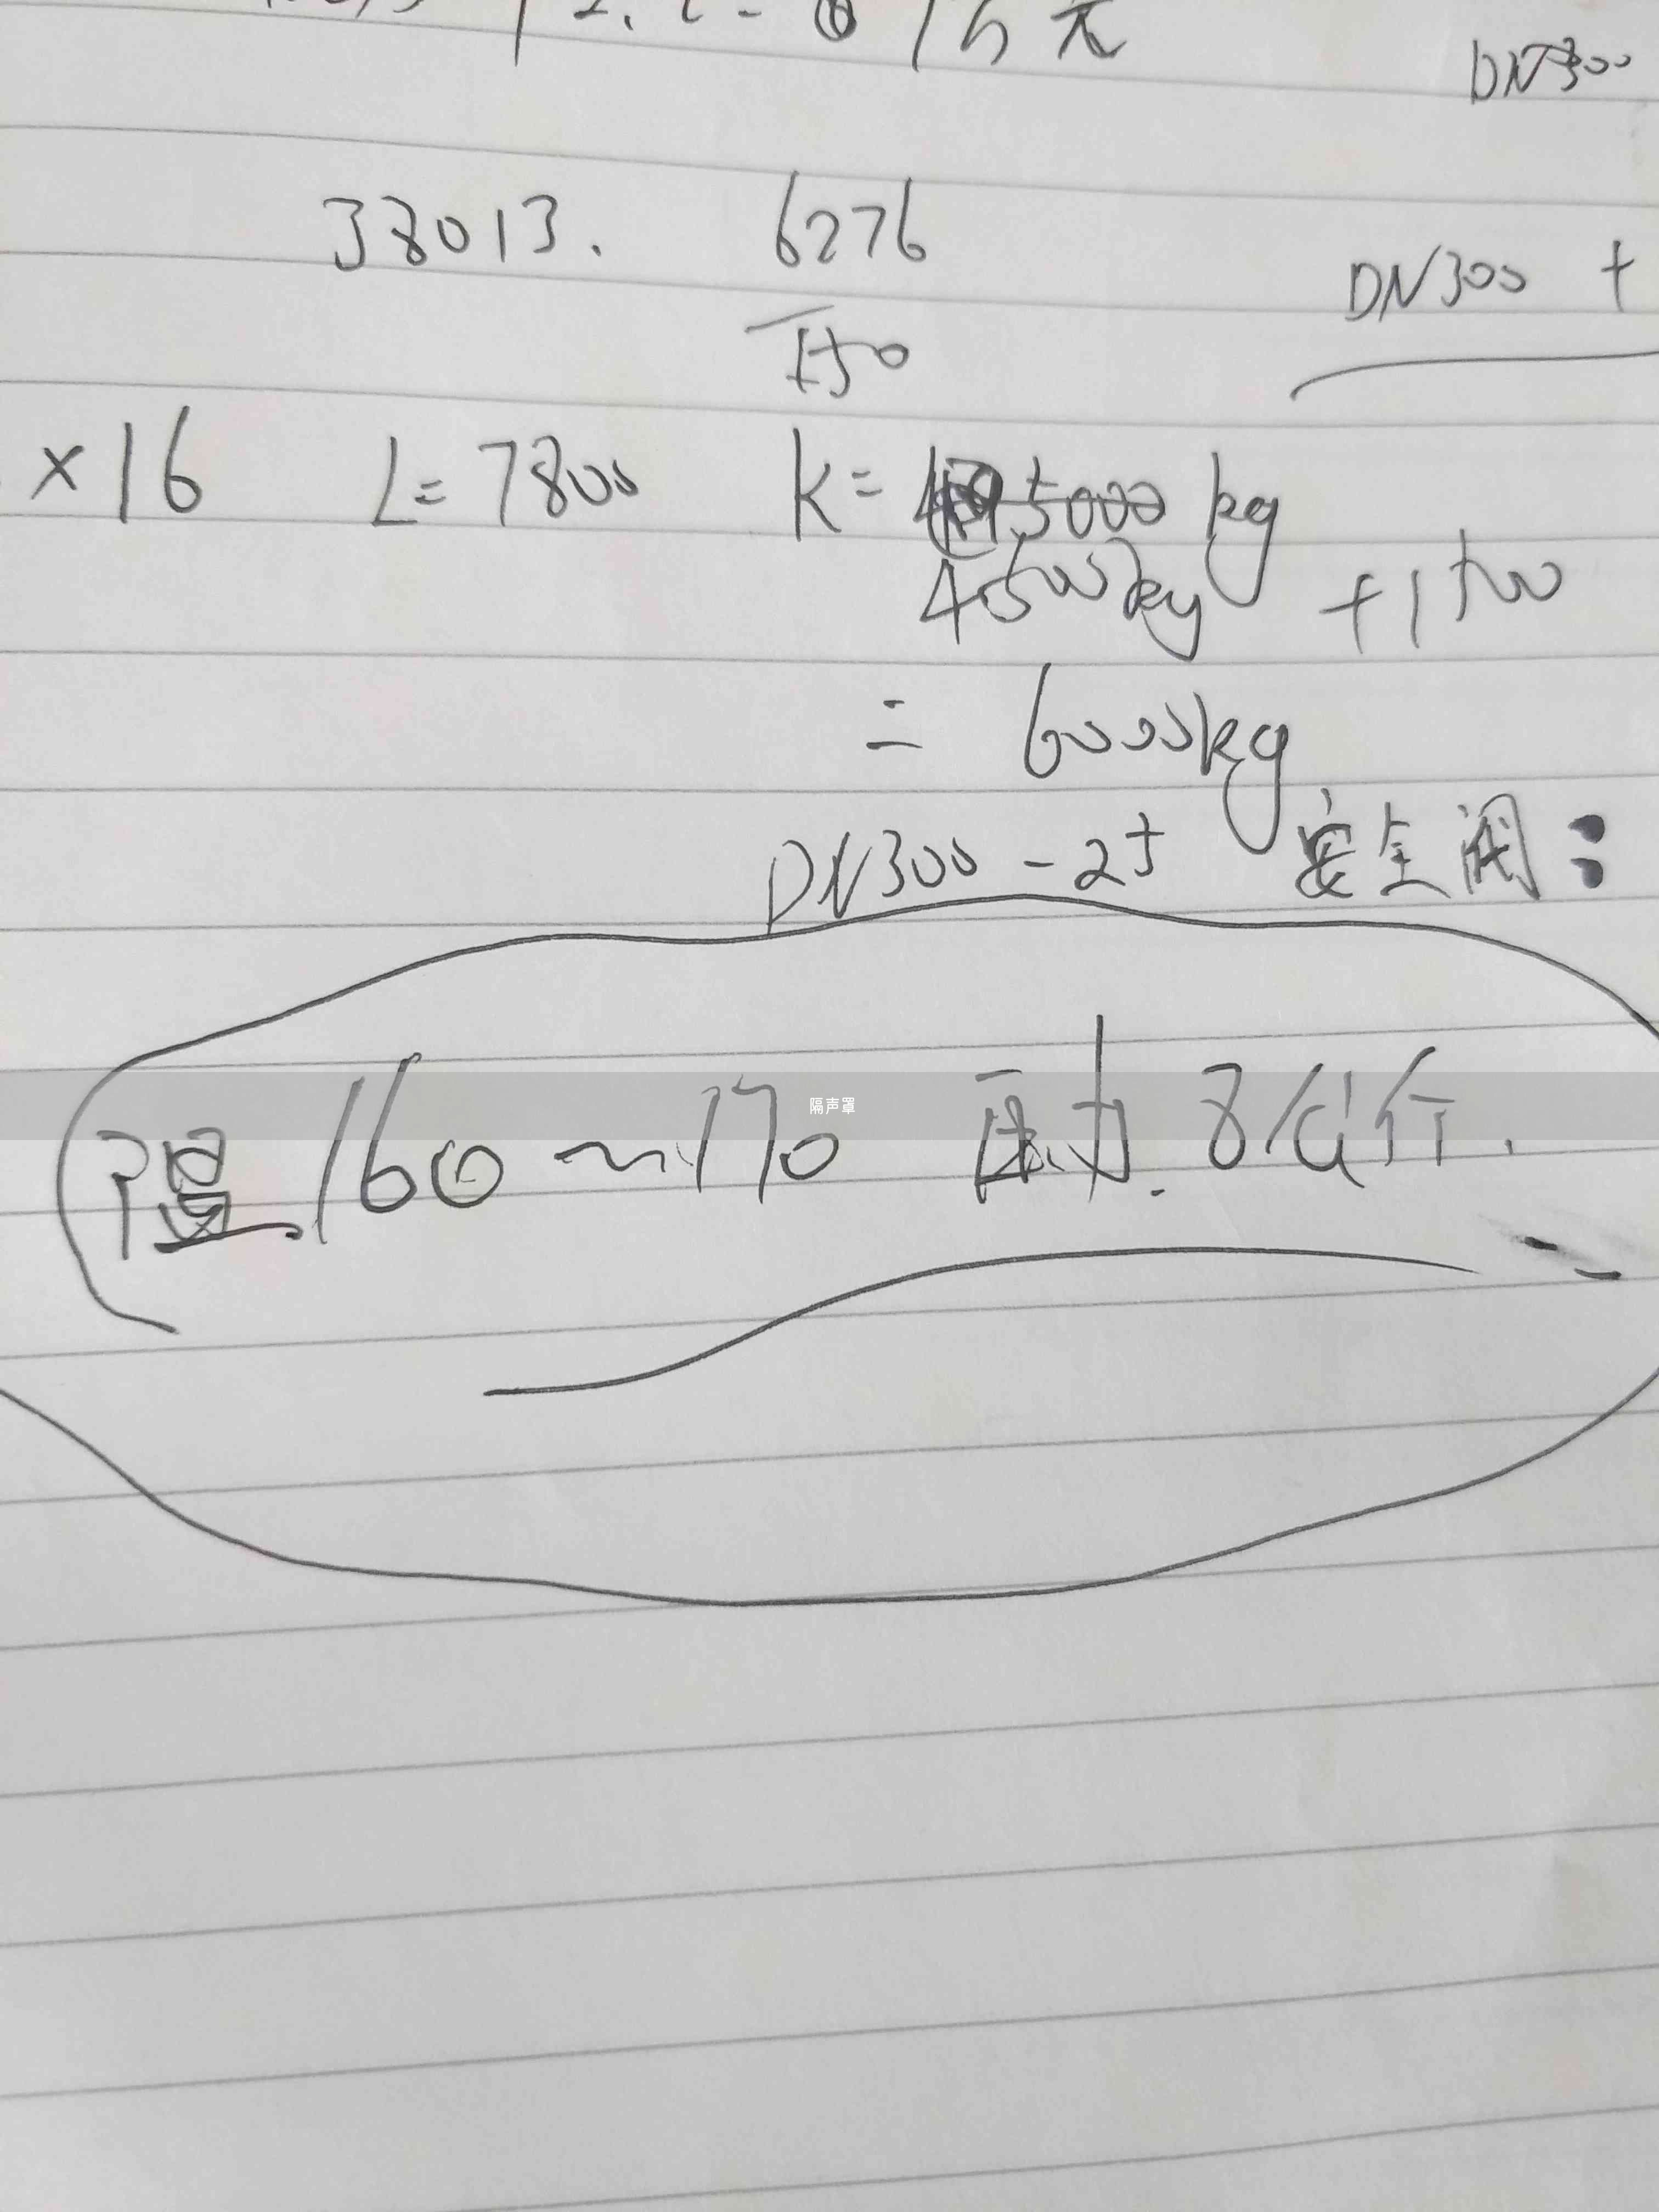 万元
DN300
38013. 6276
DN300 +
150
×16 L=7800 K= 5000 kg
4500kg +1500
= 6000kg
DN300-25 安全阀:
隔声罩
温160~170 压力.8公斤.